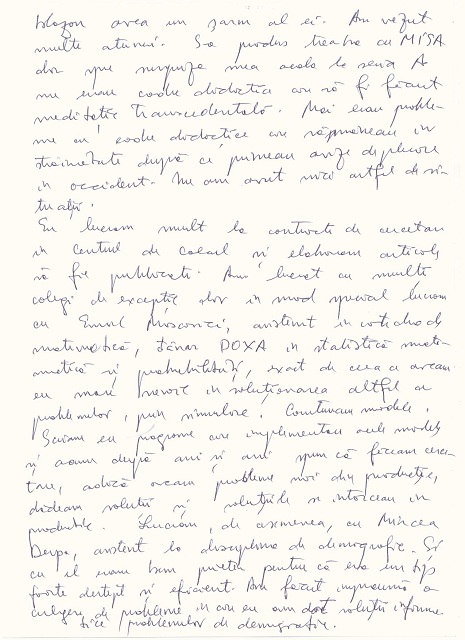 blazon avea un șarm al ei. Am văzut
multe atunci. S-a produs treaba cu MISA
dar spre surpriza mea acolo la seria A
nu erau cadre didactice care să fi făcut
meditație transcedentală. Mai erau proble-
me cu cadre didactice care rămâneau în
străinătate după ce primeau avize de plecare
în occident. Nu am avut nici astfel de si-
tuații.
Eu lucram mult la contracte de cercetare
în centrul de calcul și elaboram articole
să fie publicate. Am lucrat cu mulți
colegi de excepție dar în mod special lucram
cu Emil Moscovici, asistent în catedra de
matematică, tânăr DOXA în statistică mate-
matică și probabilități, exact de ceea ce aveam
eu mare nevoie în soluționarea altfel a
problemelor, prin simulare. Construiam modele.
Scriam eu programe care implementau acele modele
și acum după ani și ani spun că făceam cerce-
tare, adică aveam probleme noi din producție,
dădeam soluții și soluțiile se întorceau în
producție. Lucram, de asemenea, cu Mircea
asistent la disciplina de demografie. Și
cu el eram bun prieten pentru că era un tip
foarte deștept și eficient. Am făcut împreună o
culegere de probleme în care eu am dat soluții informa-
tice problemelor de demografie.